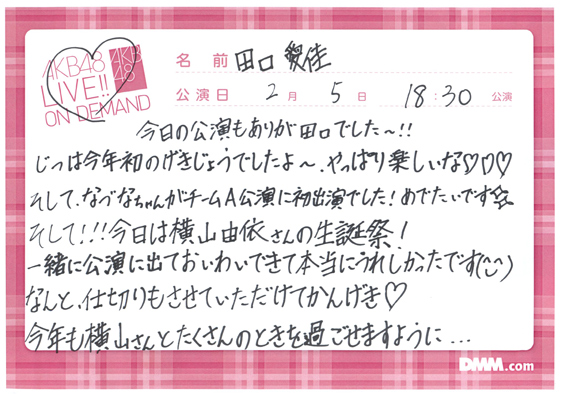 AKB48
LIVE!!
ON DEMAND
AKB
48
名前 田口愛佳
公演日 2月 5日 18:30 公演
今日の公演もありが田口でした〜!!
じつは今年初のげきじょうでしたよ〜、やっぱり楽しいな♡♡♡
そして、なづなちゃんがチームA公演に初出演でした!めでたいです☆
そして!!!今日は横山由依さんの生誕祭!
一緒に公演に出ておいわいできて本当にうれしかったです(^-^)
なんと、仕切りもさせていただけてかんげき♡
今年も横山さんとたくさんのときを過ごせますように...
DMM.com